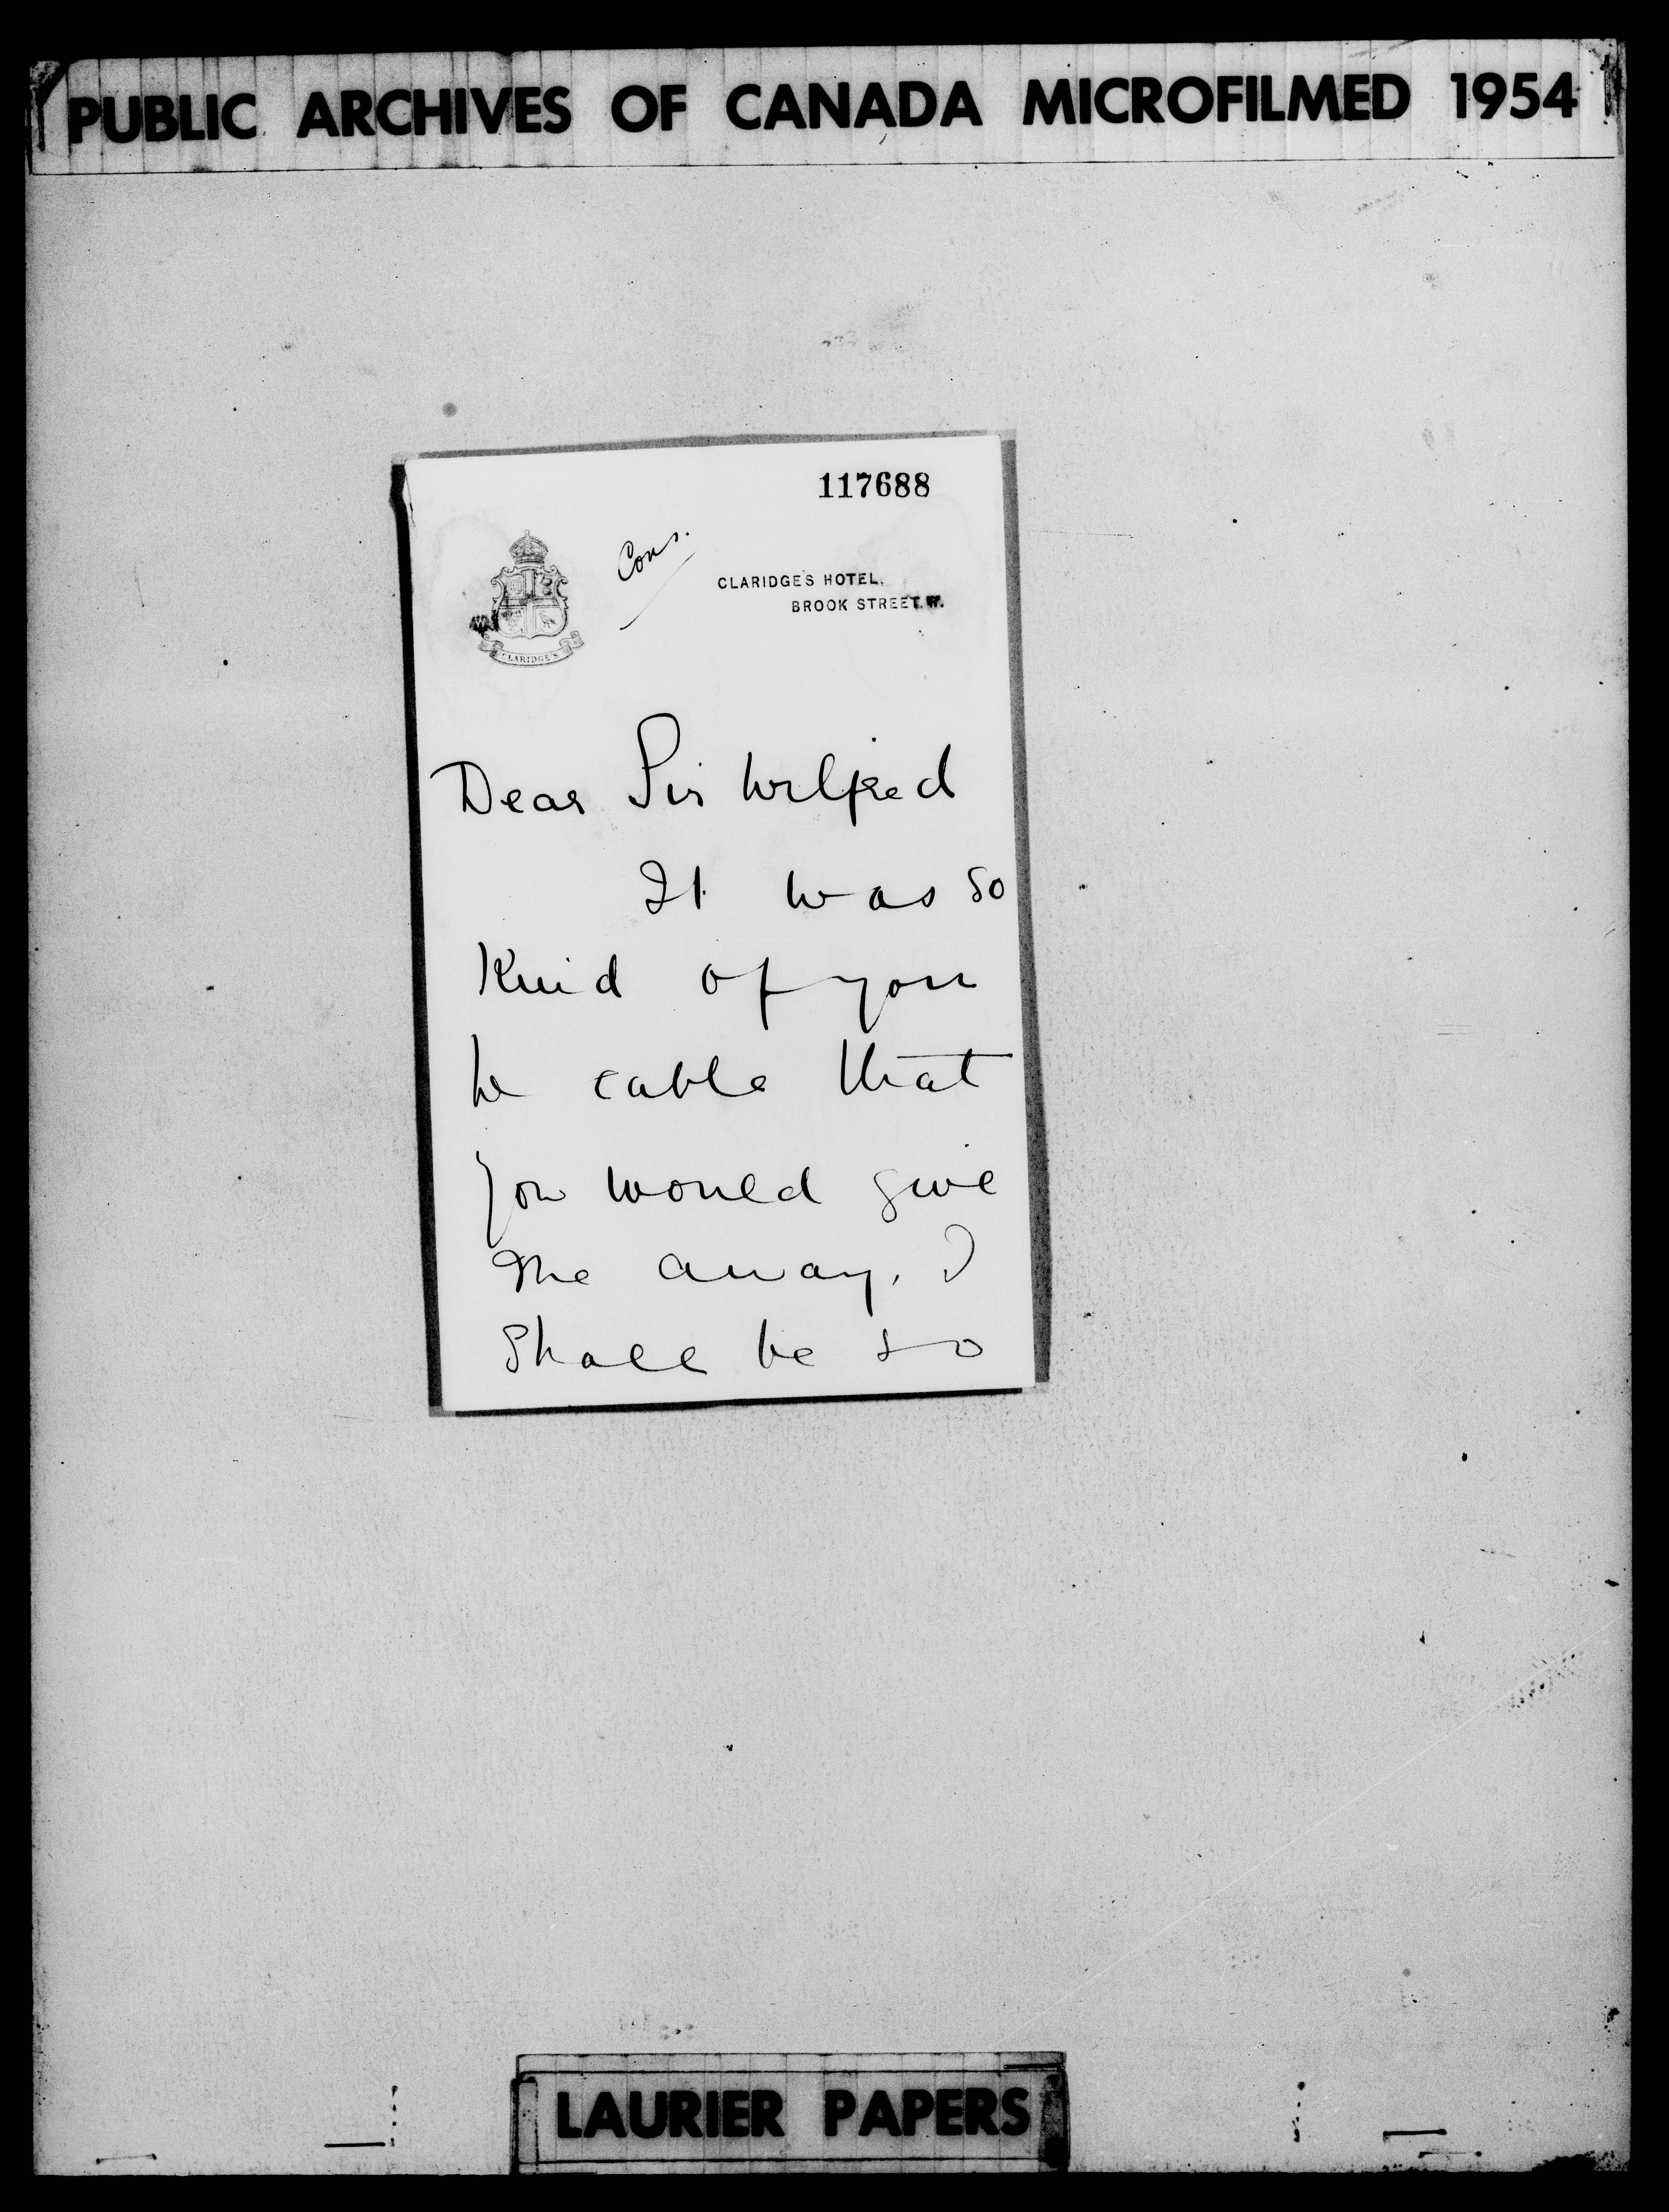 PUBLIC ARCHIVES OF CANADA MICROFILMED 1954
117688
Cons.
CLARIDGE'S HOTEL,
BROOK STREET. W.
CLARIDGE'S
Dear Sir Wilfred
It was so
Kind of you
to cable that
you would give
me away. I
Shall be so
LAURIER PAPERS